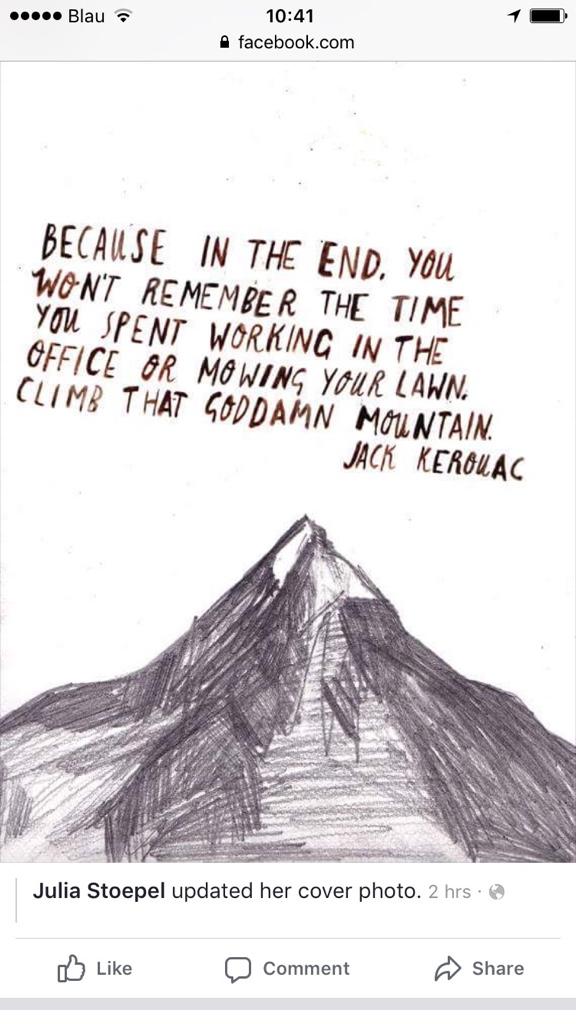 Blau 10:41
facebook.com
BECAUSE IN THE END, YOU
WON'T REMEMBER THE TIME
YOU SPENT WORKING IN THE
OFFICE OR MOWING YOUR LAWN.
CLIMB THAT GODDAMN MOUNTAIN.
JACK KEROUAC
Julia Stoepel updated her cover photo. 2 hrs ·
Like Comment Share